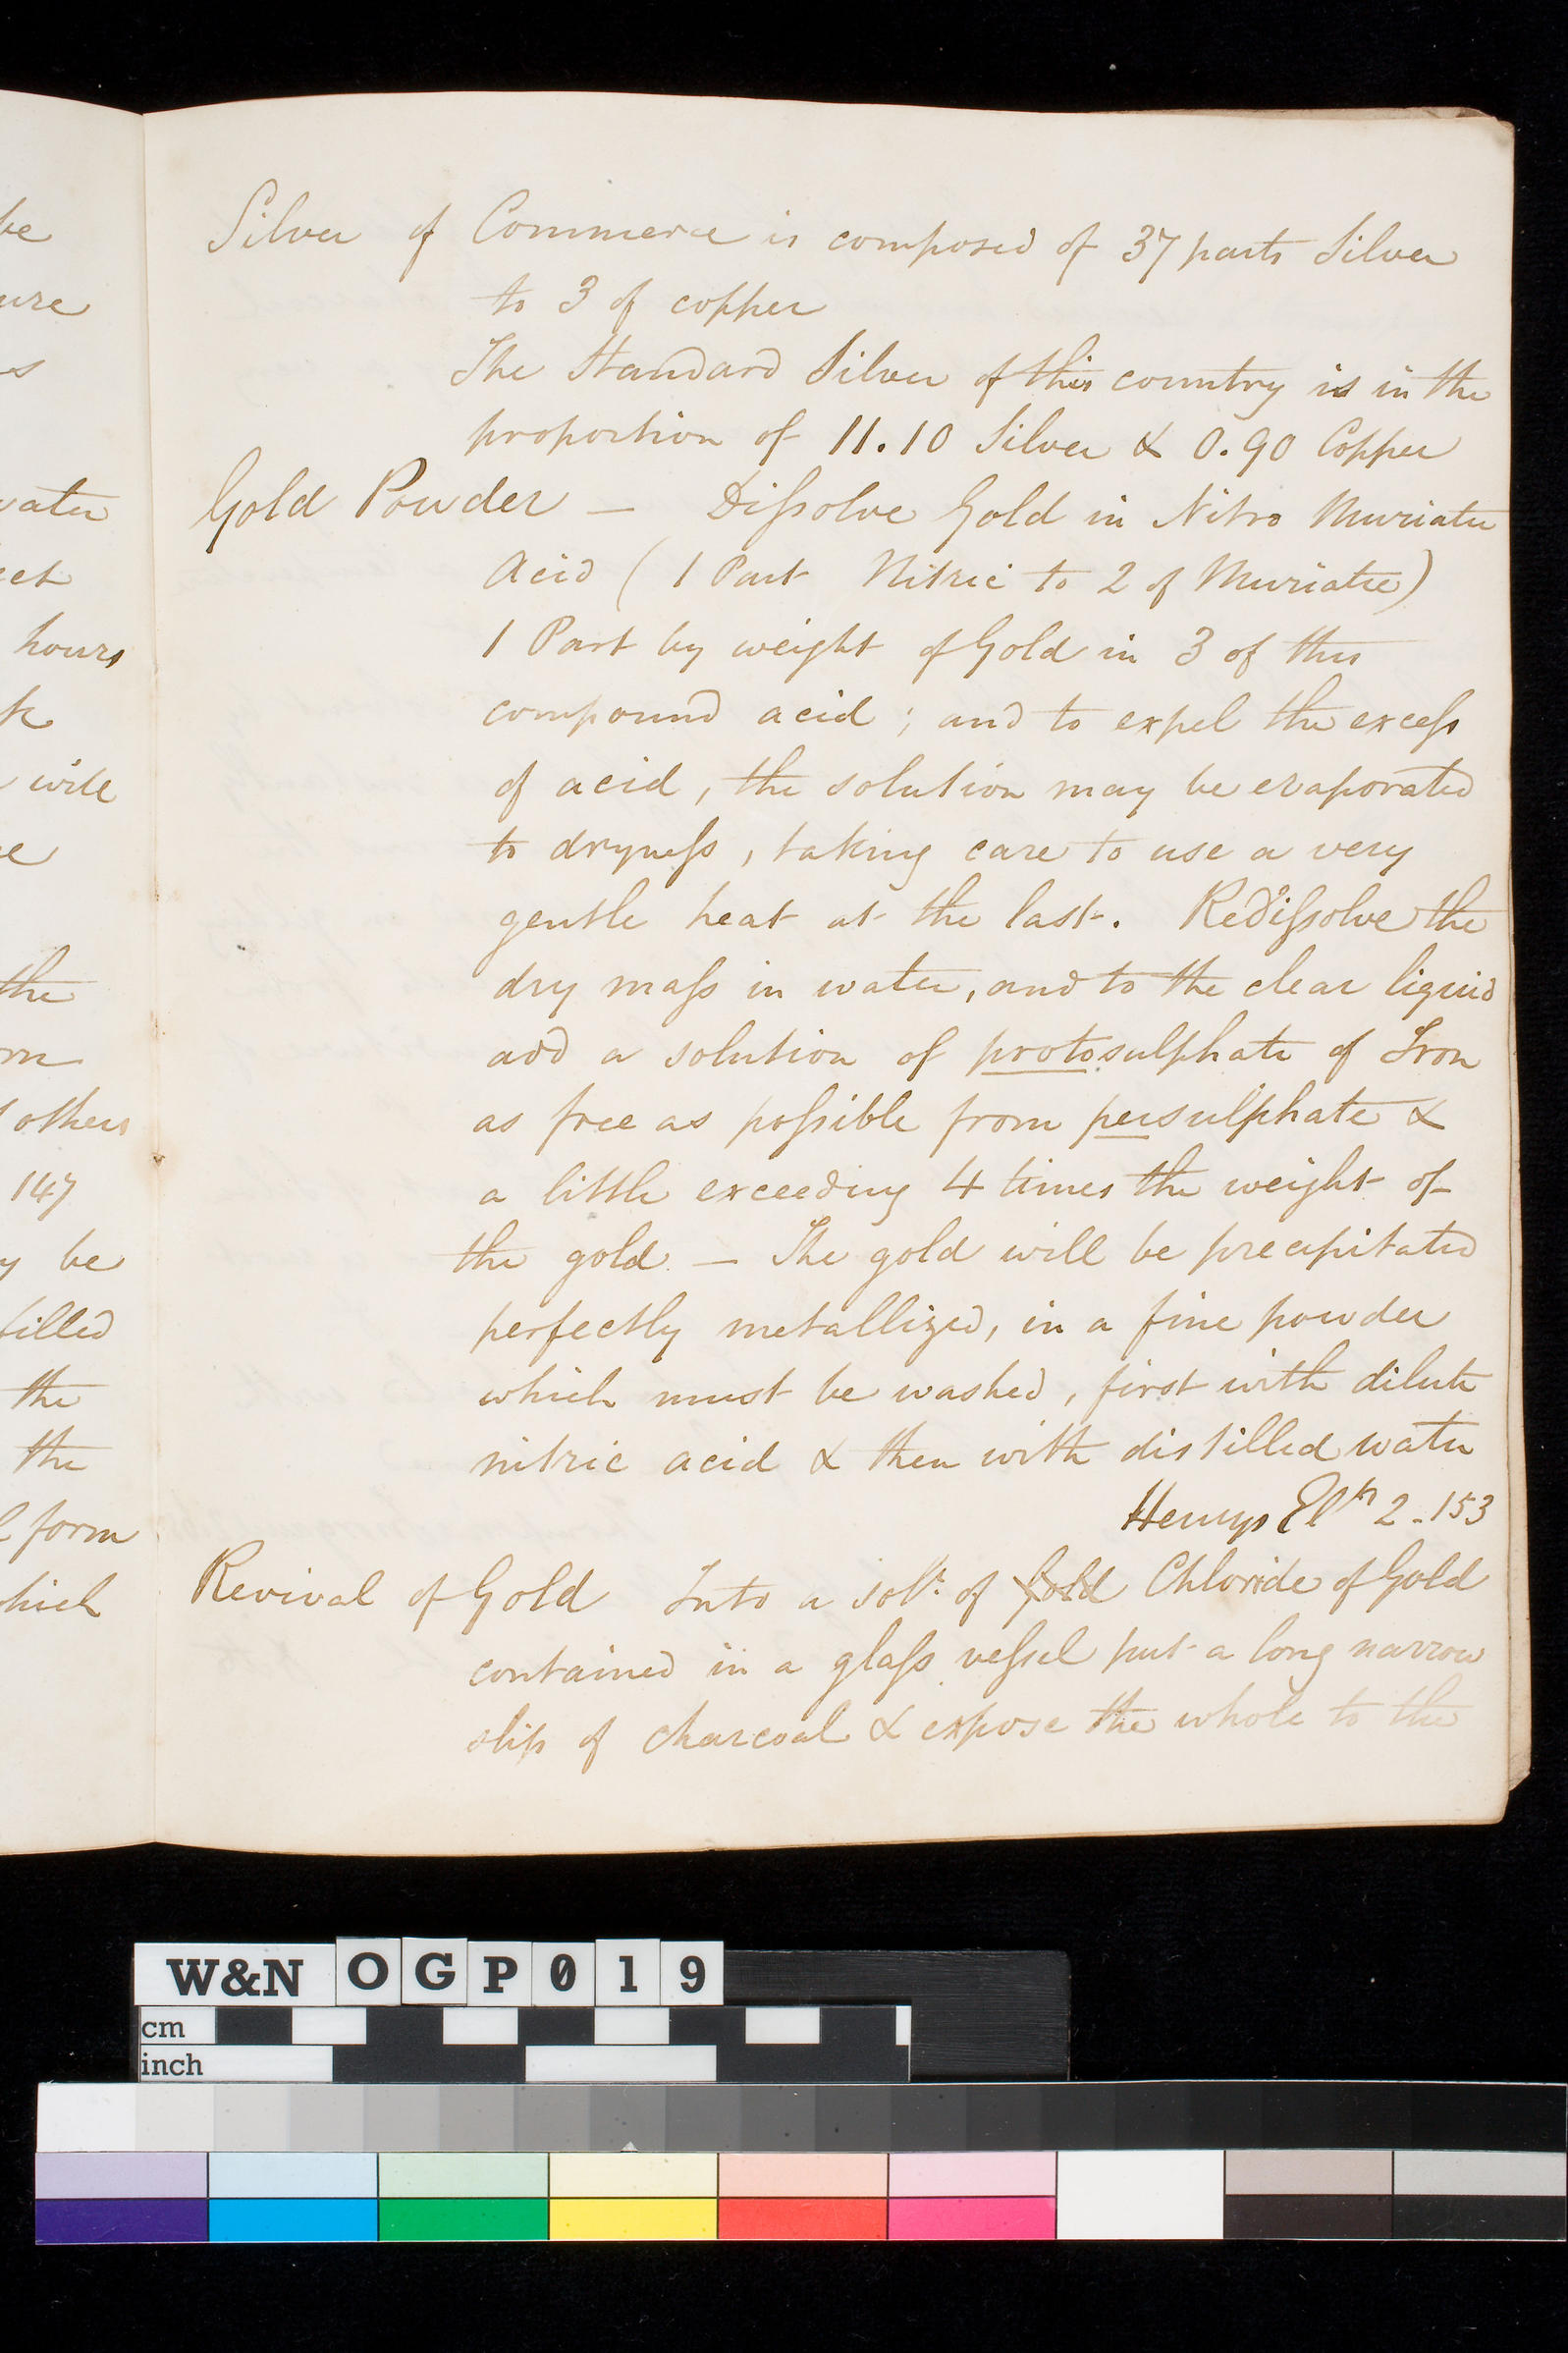 be
ure
s
water
ect
hours
k
will
e
the
rm
others
147
y be
tilled
the
the
l form
which
Silver of Commerce is composed of 37 parts Silver
to 3 of copper
The Standard Silver of this country is in the
proportion of 11.10 Silver & 0.90 Copper
Gold Powder — Dissolve Gold in Nitro Muriatic
Acid (1 Part Nitric to 2 of Muriatic)
1 Part by weight of Gold in 3 of this
compound acid; and to expel the excess
of acid, the solution may be evaporated
to dryness, taking care to use a very
gentle heat at the last. Redissolve the
dry mass in water, and to the clear liquid
add a solution of protosulphate of Iron
as free as possible from persulphate &
a little exceeding 4 times the weight of
the gold — The gold will be precipitated
perfectly metallized, in a fine powder
which must be washed, first with dilute
nitric acid & then with distilled water
Henrys 2.153
Revival of Gold Into a sol.n of Gold Chloride of Gold
contained in a glass vessel put a long narrow
slip of charcoal & expose the whole to the
W&N OGP019
cm
inch